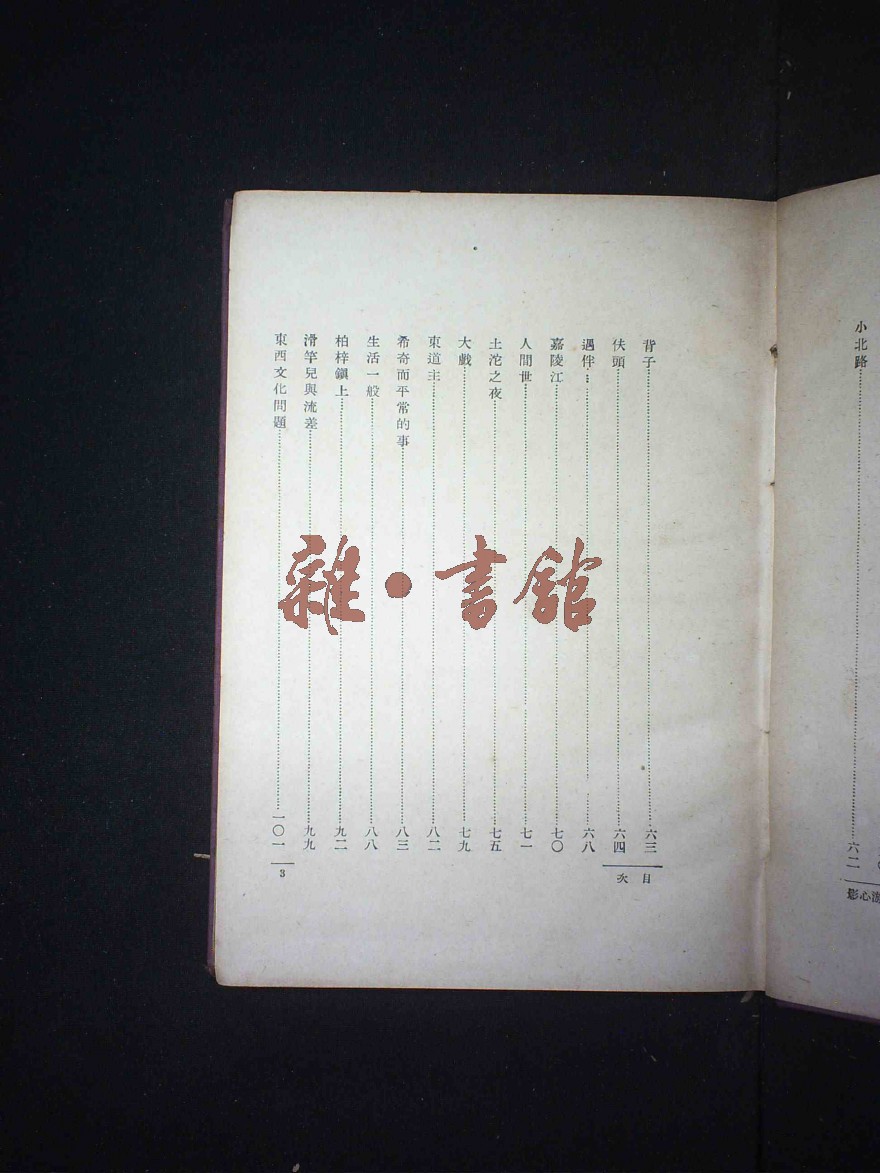 小北路……六二
背子……六三
伕頭……六四
遇伴……六八
嘉陵江……七〇
人間世……七一
土沱之夜……七五
大戲……七九
東道主……八二
希奇而平常的事……八三
生活一般……八八
柏梓鎭上……九二
滑竿兒與流差……九九
東西文化問題……一〇一
目次
3
心影
雜·書館